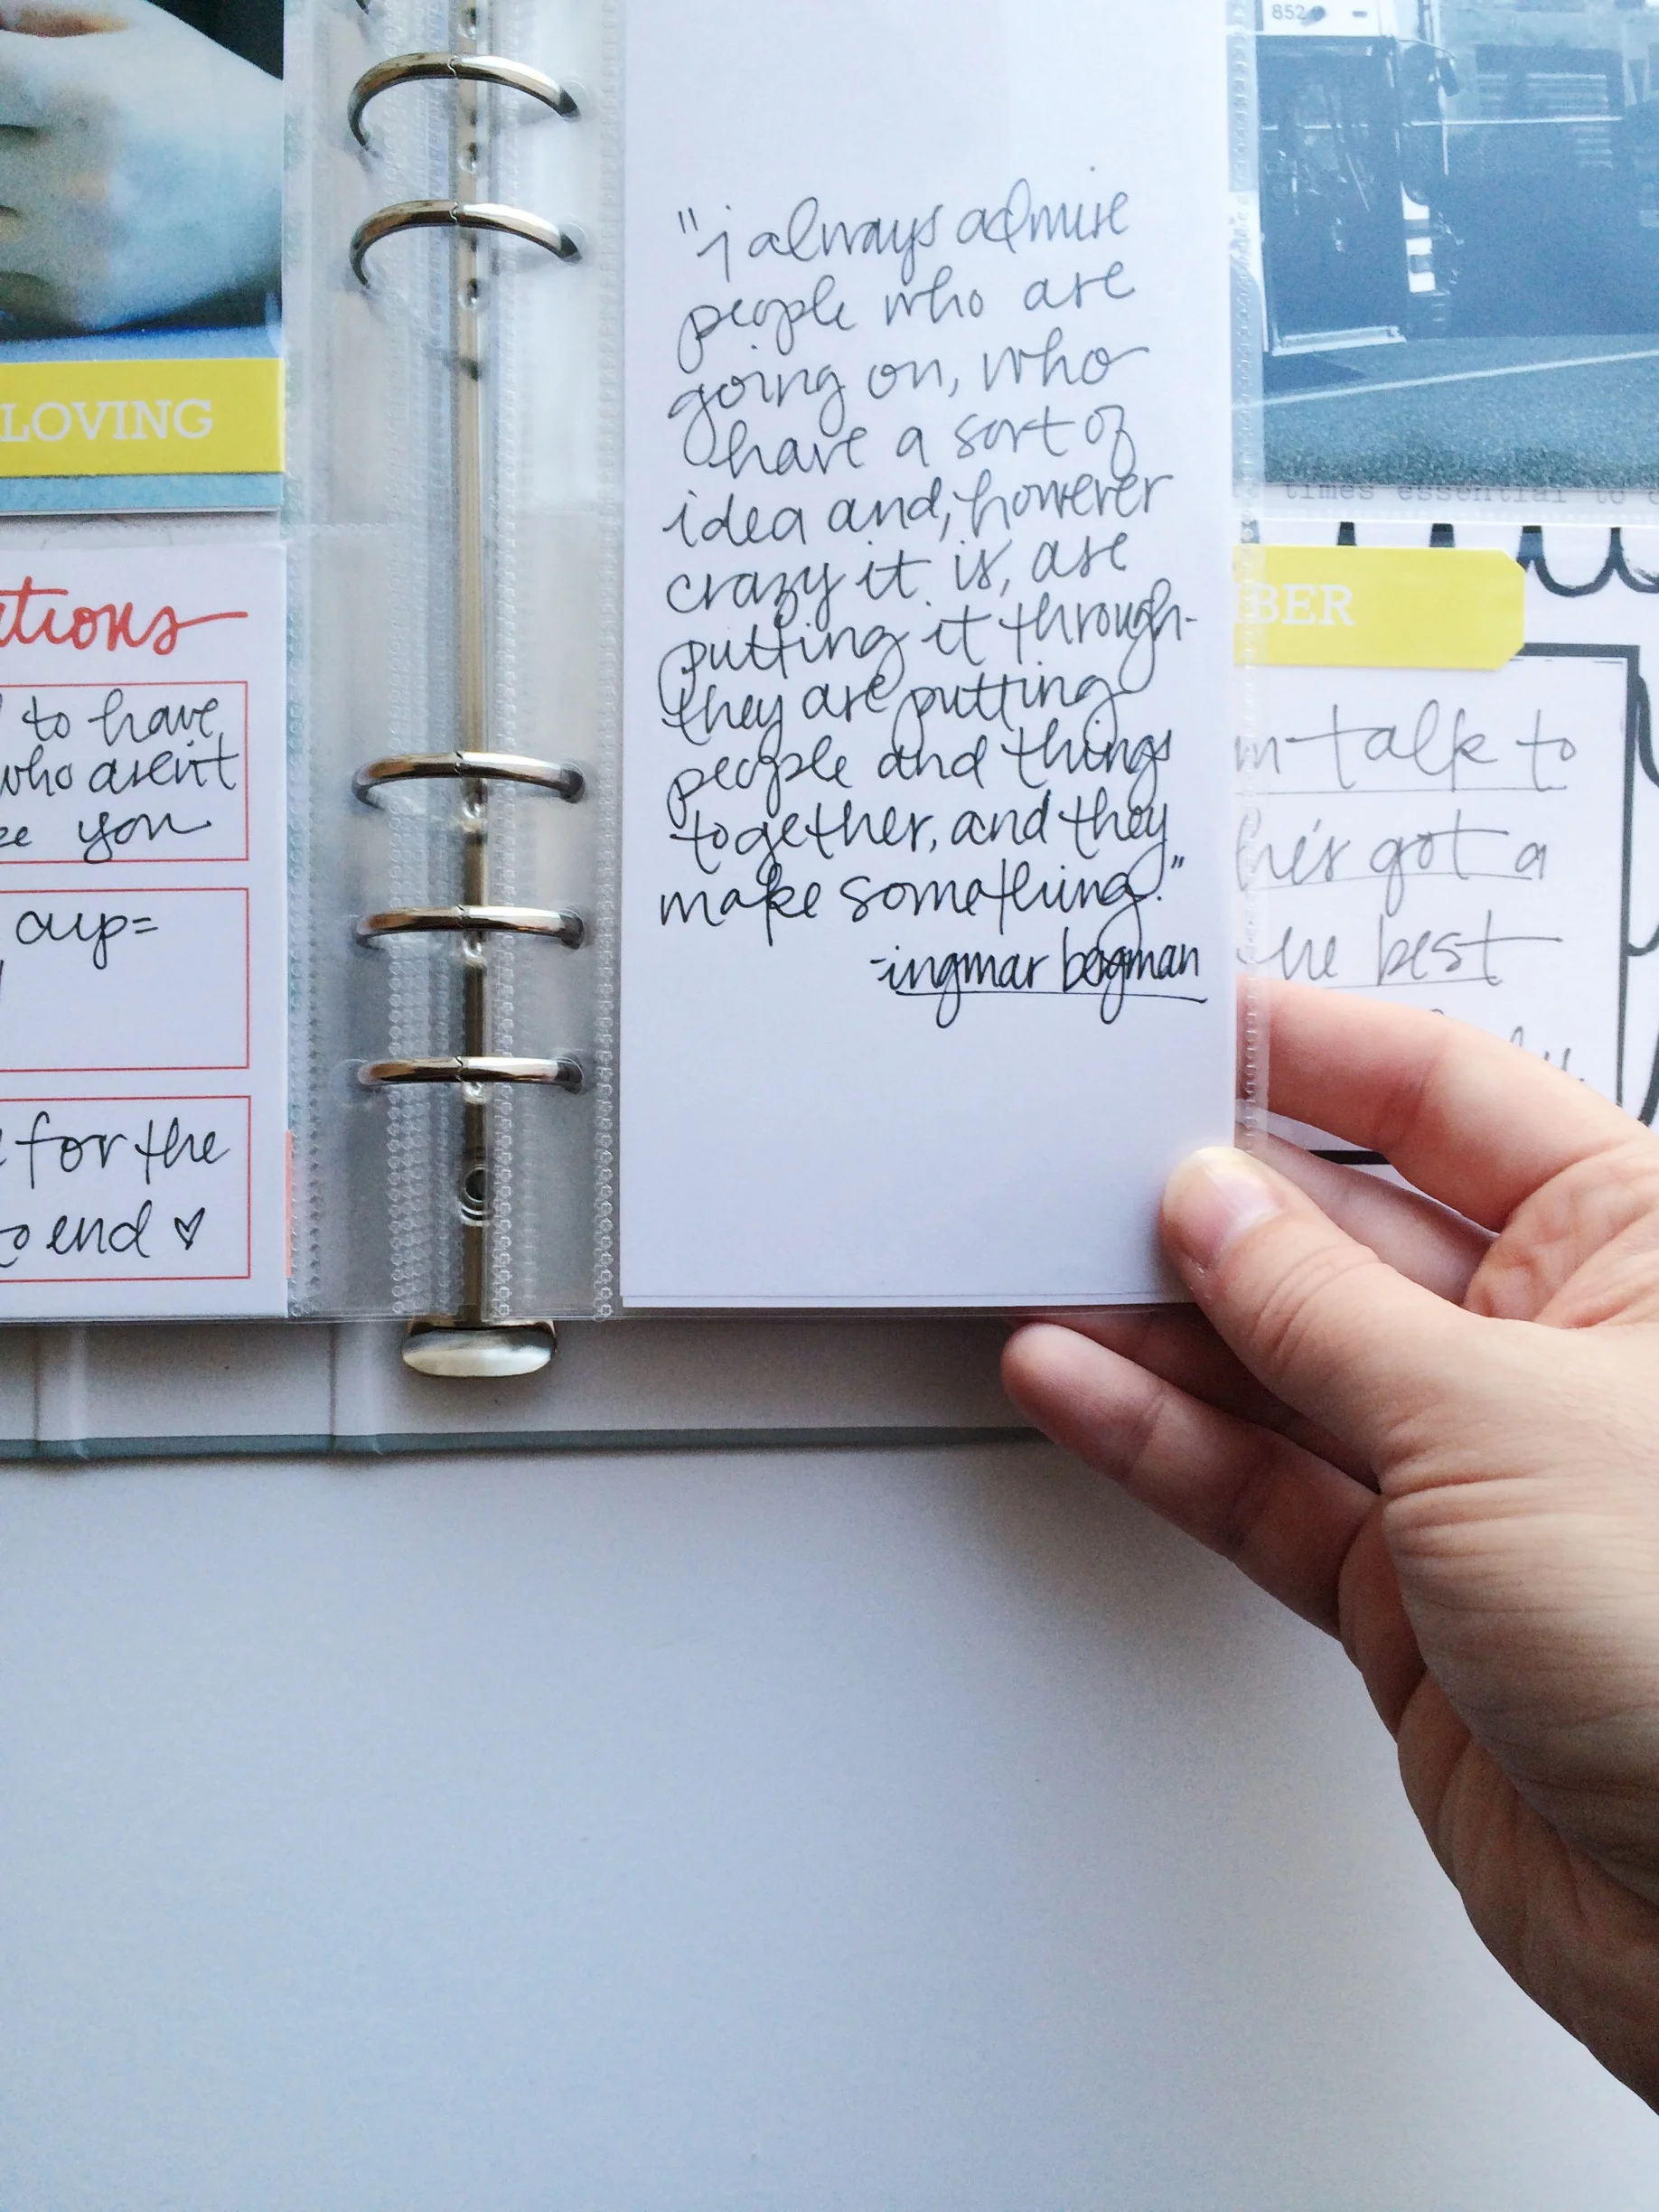 LOVING
to have
who aren't
you
cup=
for the
to end ♡
"i always admire
people who are
going on, who
have a sort of
idea and, however
crazy it is, are
putting it through-
they are putting
people and things
together, and they
make something."
-ingmar bergman
852
times essential to
BER
talk to
he's got a
best